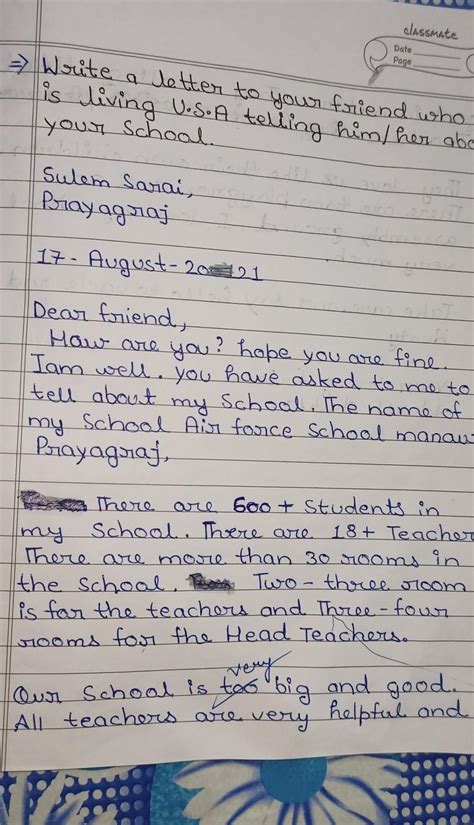 classmate
Date
Page
⇒ Write a letter to your friend who
is living U.S.A telling him/her abo
your School.
Sulem Sarai,
Prayagraj
17 - August - 2021
Dear friend,
How are you? hope you are fine.
Iam well. you have asked to me to
tell about my School. The name of
my School Air force School manau
Prayagraj,
There are 600 + Students in
my School. There are 18+ Teacher
There are more than 30 rooms in
the School. Two - three room
is for the teachers and Three - four
rooms for the Head Teachers.
very
Our School is too big and good.
All teachers are very helpful and